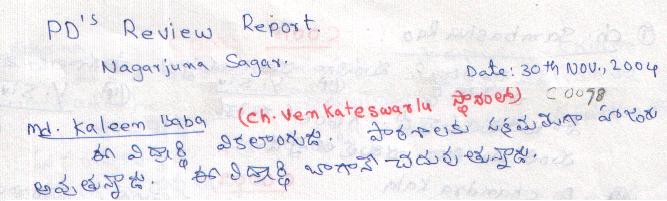 PD's Review Report.
Nagarjuna Sagar.
Date: 30th NOV., 2004
Md. Kaleem Baba (Ch. Venkateswarlu స్థానంలో) C0078
ఈ విద్యార్థి వికలాంగుడు. పాఠశాలకు సక్రమముగా హాజరు
అవుతున్నాడు. ఈ విద్యార్థి బాగానే చదువుతున్నాడు.